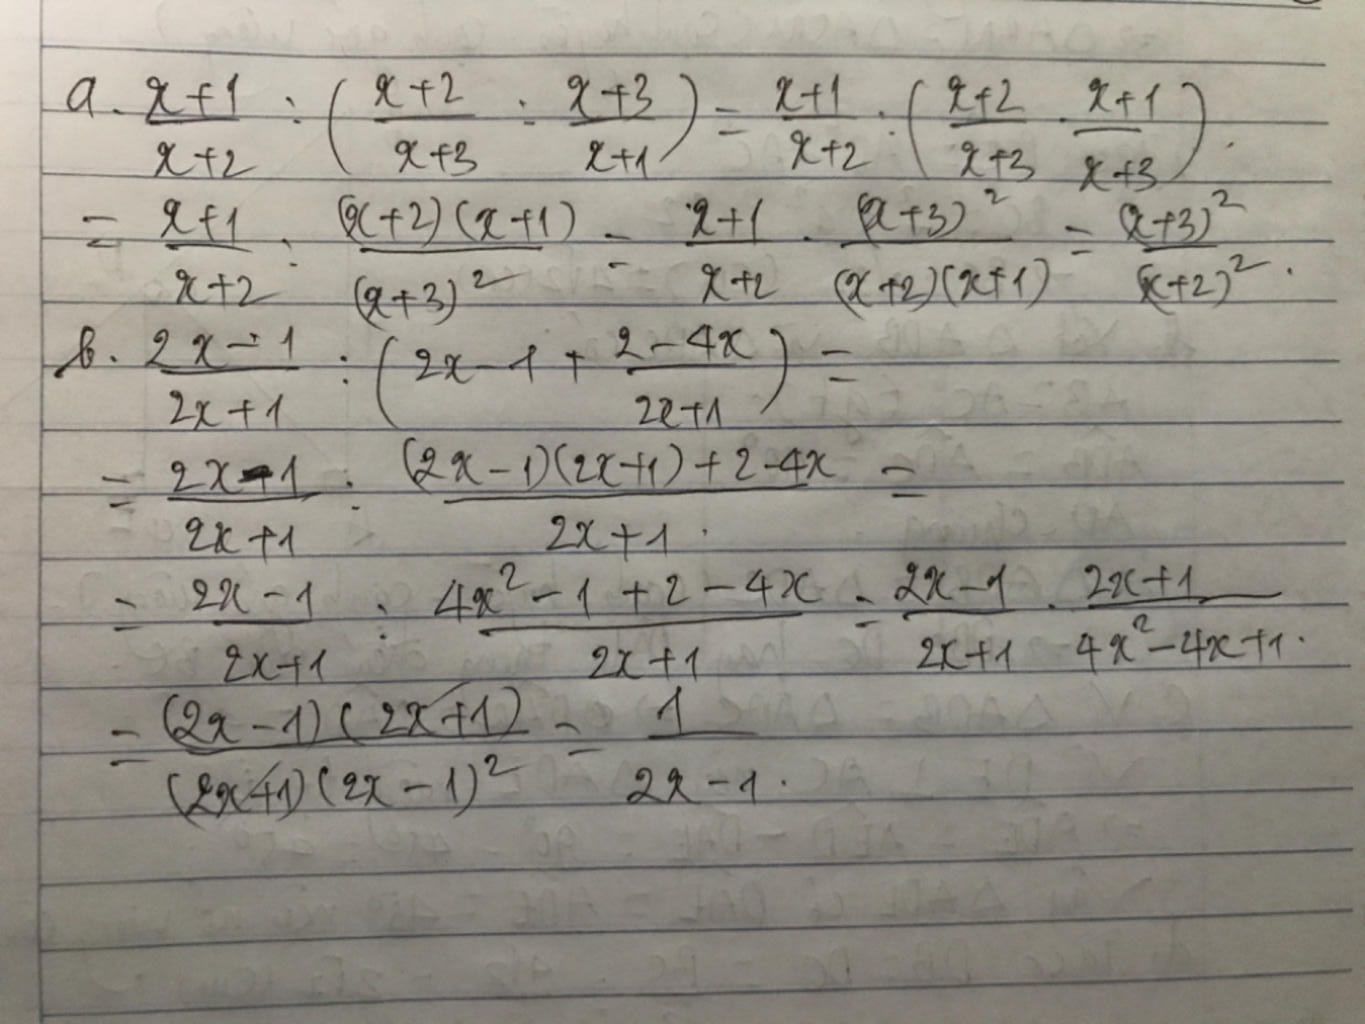 a. (x+1)/(x+2) : ((x+2)/(x+3) : (x+3)/(x+1)) = (x+1)/(x+2) : ((x+2)/(x+3) · (x+1)/(x+3)).
= (x+1)/(x+2) : ((x+2)(x+1))/(x+3)² = (x+1)/(x+2) · (x+3)²/((x+2)(x+1)) = (x+3)²/(x+2)².
b. (2x-1)/(2x+1) : (2x-1+(2-4x)/(2x+1)) =
= (2x-1)/(2x+1) : ((2x-1)(2x+1)+2-4x)/(2x+1) =
= (2x-1)/(2x+1) : (4x²-1+2-4x)/(2x+1) = (2x-1)/(2x+1) · (2x+1)/(4x²-4x+1).
= ((2x-1)(2x+1))/((2x+1)(2x-1)²) = 1/(2x-1).